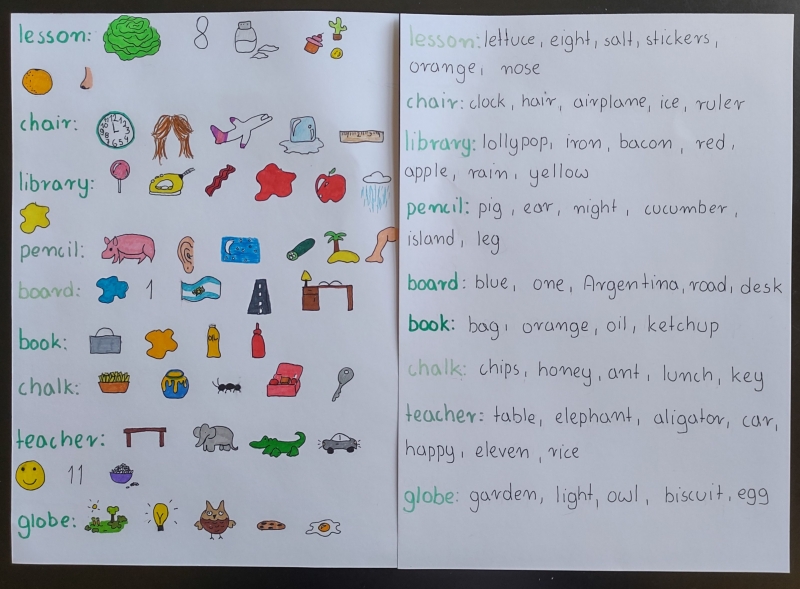 lesson: 8
chair:
library:
pencil:
board: 1
book:
chalk:
teacher:
11
globe:
lesson: lettuce, eight, salt, stickers,
orange, nose
chair: clock, hair, airplane, ice, ruler
library: lollypop, iron, bacon, red,
apple, rain, yellow
pencil: pig, ear, night, cucumber,
island, leg
board: blue, one, Argentina, road, desk
book: bag, orange, oil, ketchup
chalk: chips, honey, ant, lunch, key
teacher: table, elephant, aligator, car,
happy, eleven, rice
globe: garden, light, owl, biscuit, egg